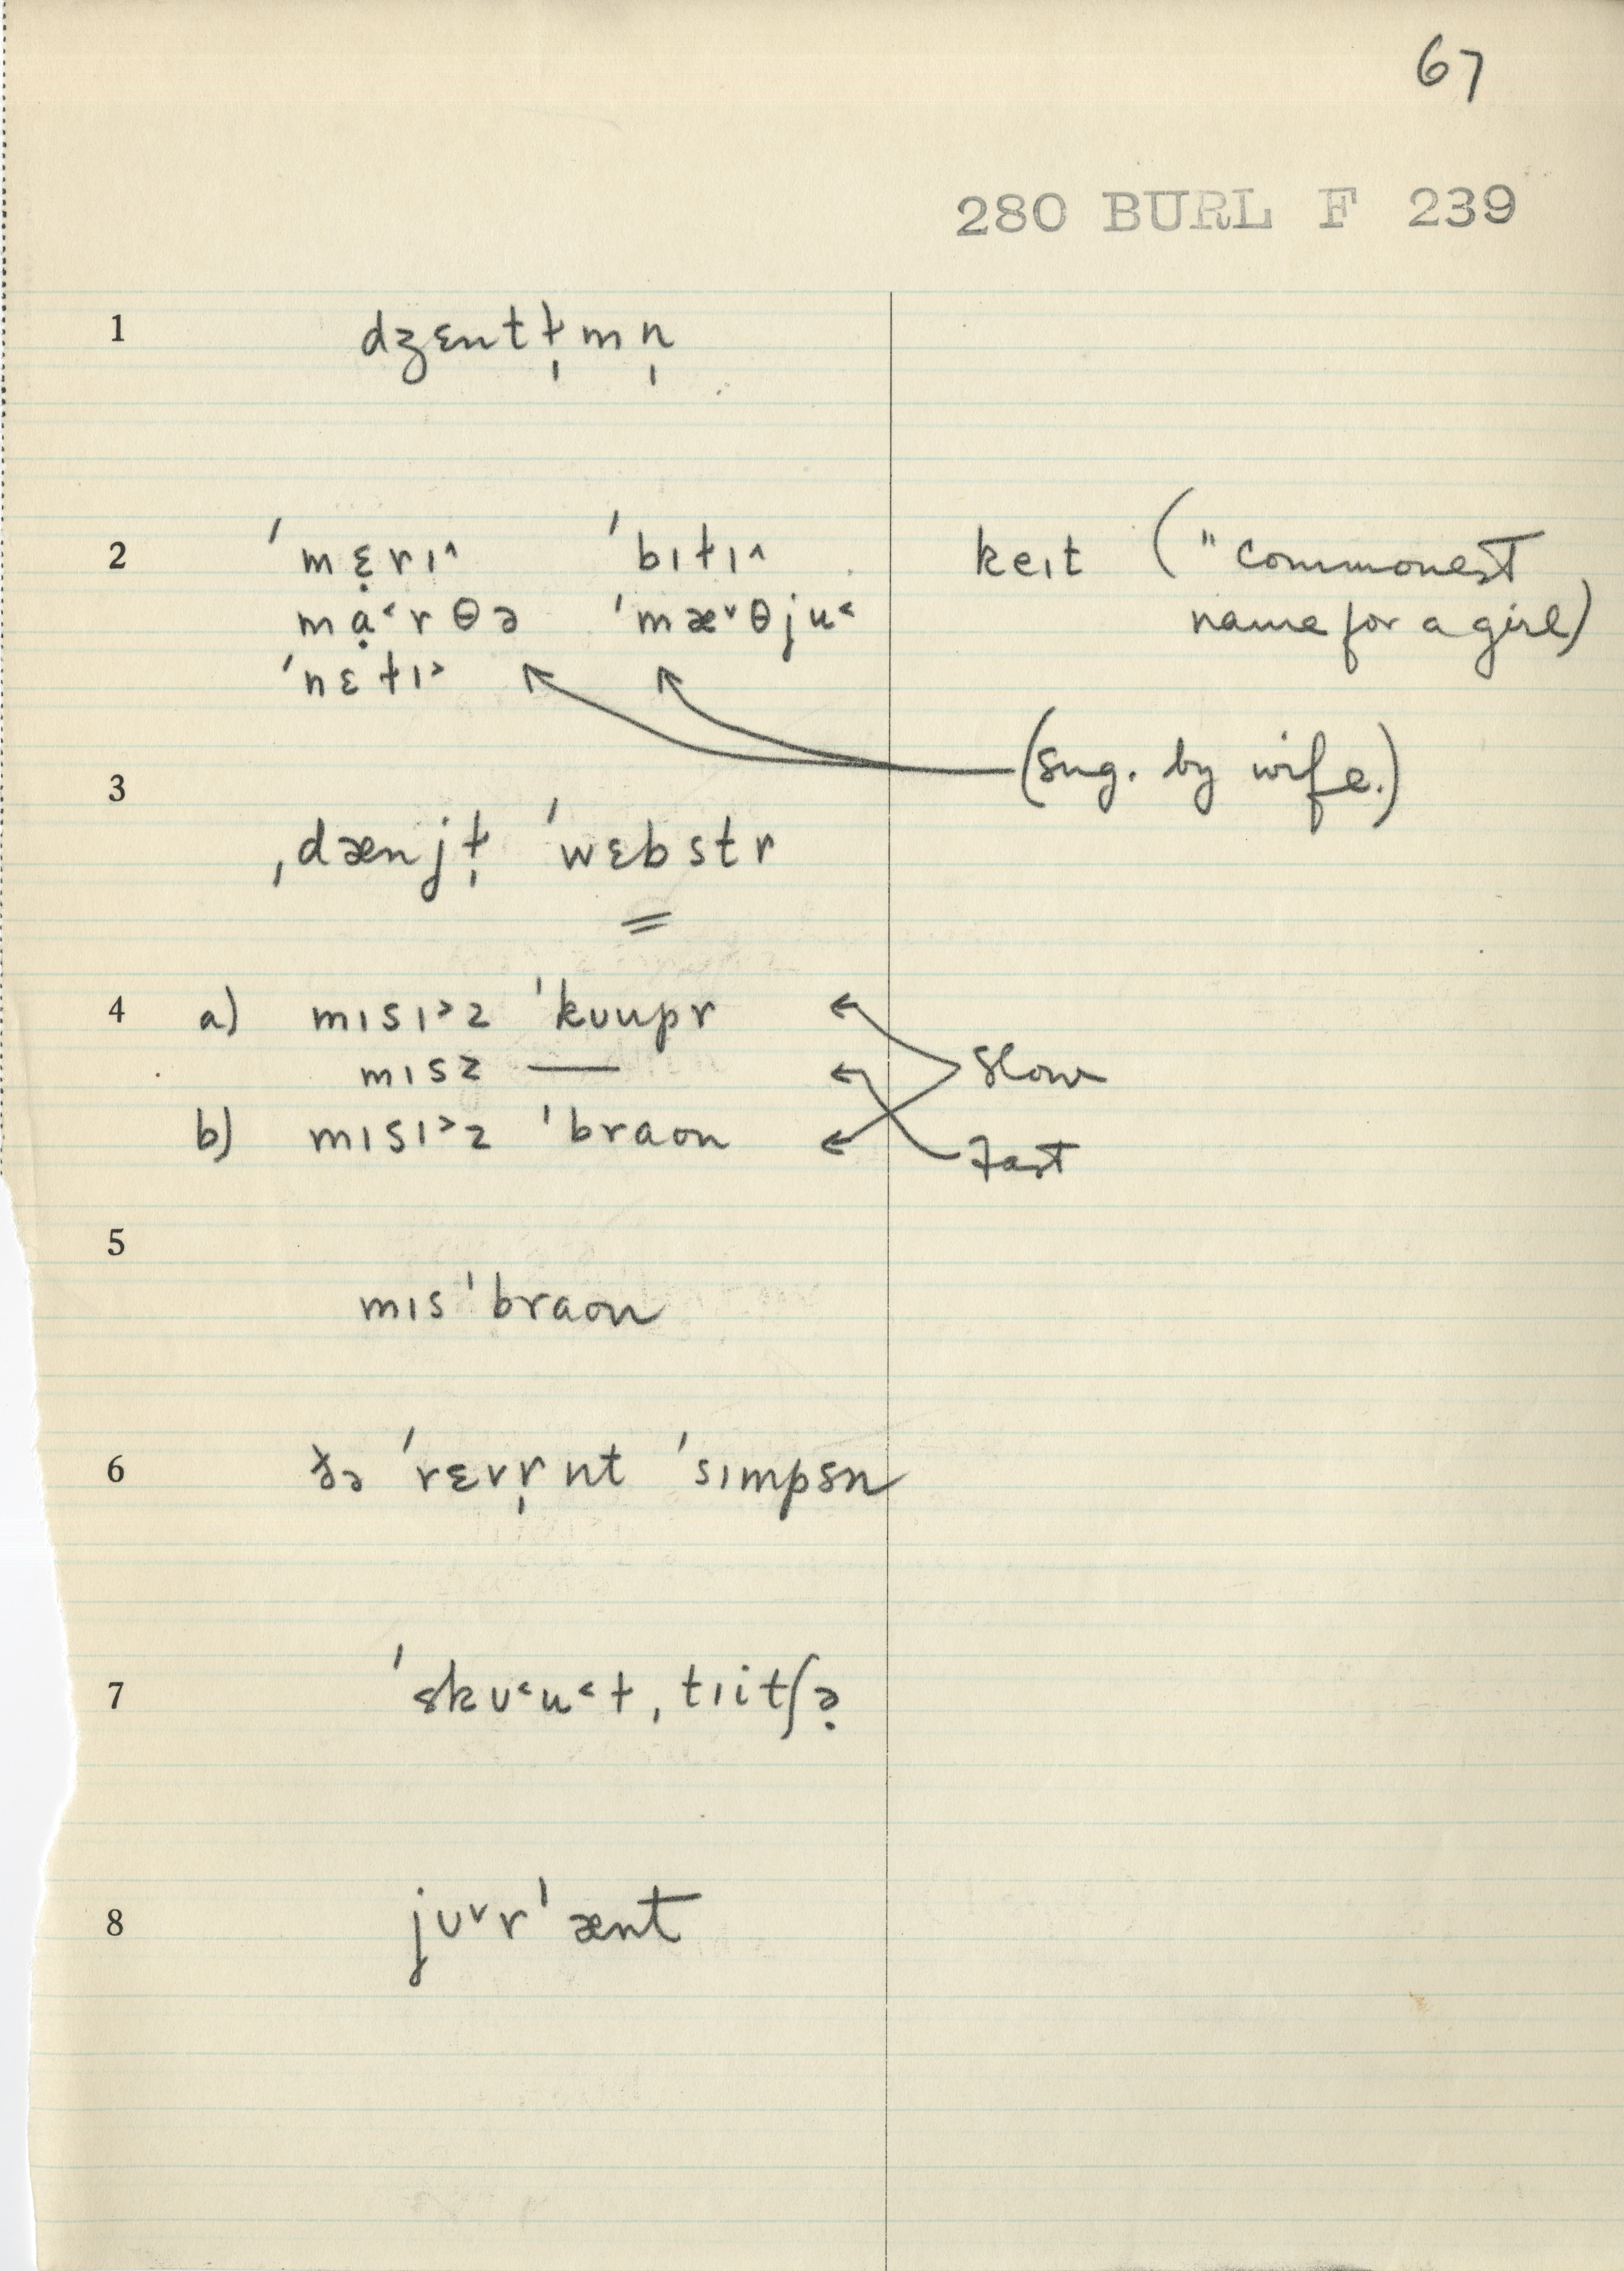 67
280 BURL F 239
1 dʒɛntɫ̩mn̩
2 ˈmɛ̣rɪ^ ˈbɪɫɪ^ keɪt ("commonest
mạ˂rθə ˈmæ˅θju˂ name for a girl)
ˈnɛɫɪ˃
(sug. by wife.)
3
ˌdænjɫ̩ ˈwɛbstr
=
4 a) mɪsɪ˃z ˈkʊupr
mɪsz — Slow
b) mɪsɪ˃z ˈbraʊn Fast
5
mɪsˈbraʊn
6 ðə ˈrɛvr̩nt ˈsɪmpsn
7 ˈskʊ˂u˂ɫˌtɪitʃə̣
8 jʊ˅rˈænt